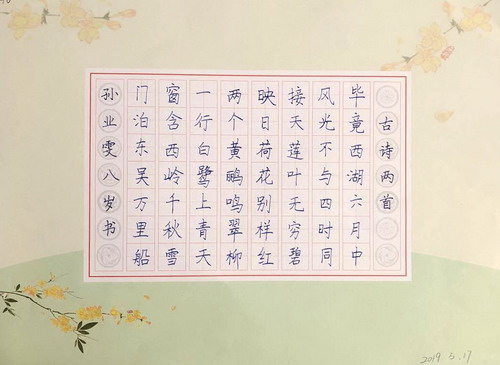 古诗两首
毕竟西湖六月中
风光不与四时同
接天莲叶无穷碧
映日荷花别样红
两个黄鹂鸣翠柳
一行白鹭上青天
窗含西岭千秋雪
门泊东吴万里船
孙业雯八岁书
2019.5.17